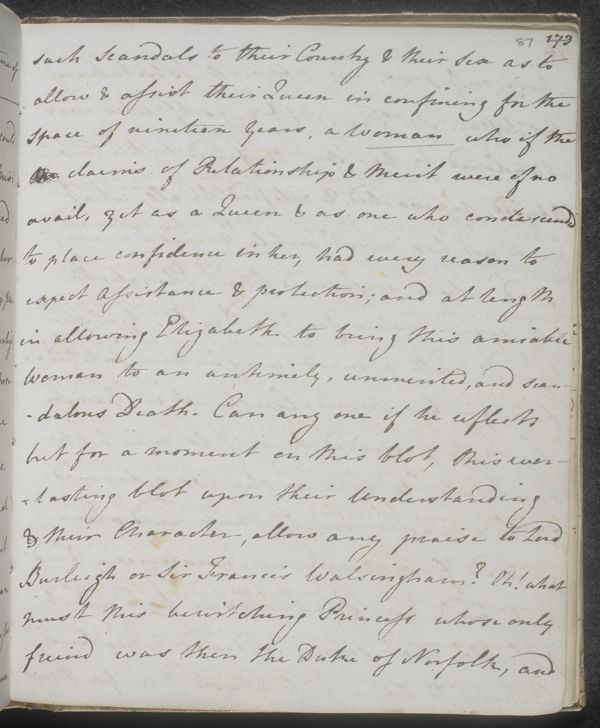 87 173
such scandals to their Country & their Sex as to
allow & assist their Queen in confining for the
space of nineteen Years, a woman who if the
claims of Relationship & Merit were of no
avail, yet as a Queen & as one who condescended
to place confidence in her, had every reason to
expect Assistance & protection; and at length
in allowing Elizabeth to bring this amiable
Woman to an untimely, unmerited, and scan-
-dalous Death. Can any one if he reflects
but for a moment on this blot, this ever-
-lasting blot upon their Understanding
& their Character, allow any praise to Lord
Burleigh or Sir Francis Walsingham? Oh! what
must this bewitching Princess whose only
freind was then the Duke of Norfolk, and